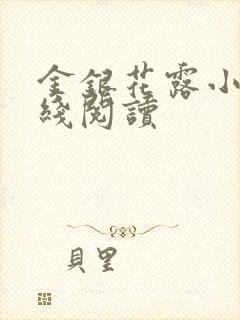 金銀花露小
綫閱讀
貝里